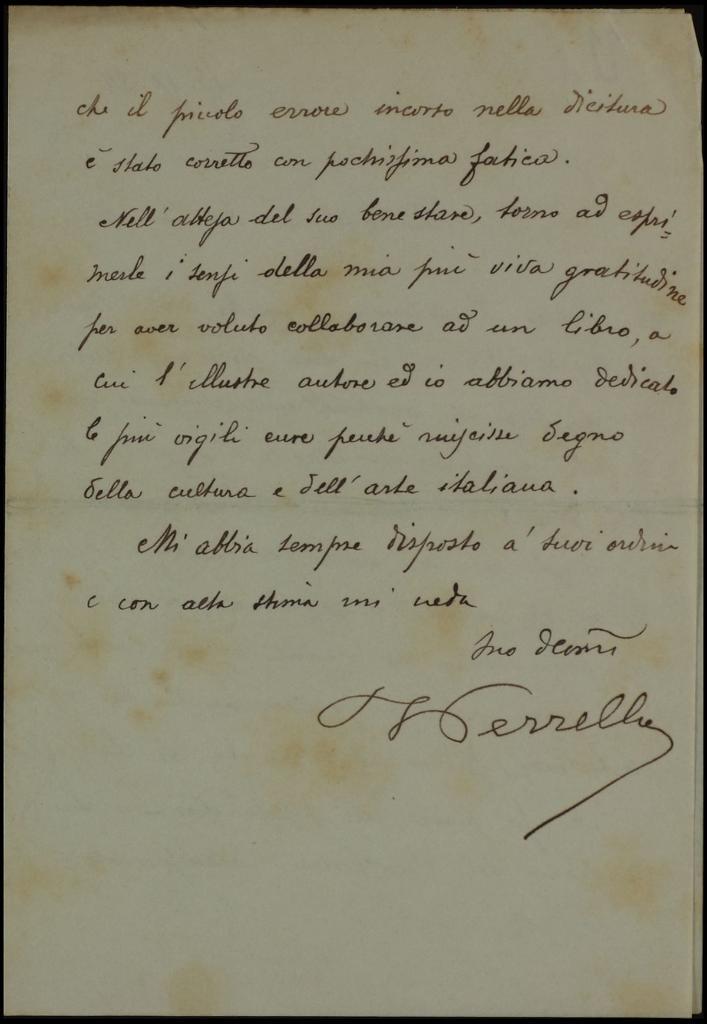 che il piccolo errore incorso nella dicitura
è stato corretto con pochissima fatica.
Nell'attesa del suo bene stare, torno ad espri=
merle i sensi della mia più viva gratitudine
per aver voluto collaborare ad un libro, a
cui l'illustre autore ed io abbiamo dedicato
le più vigili cure perché riuscisse degno
della cultura e dell'arte italiana.
Mi abbia sempre disposto a' suoi ordini
e con alta stima mi creda
Suo
Perrella